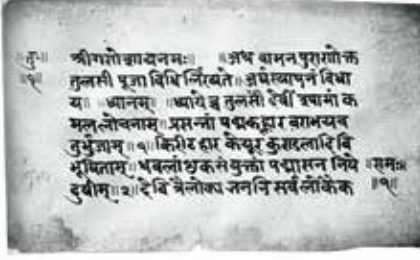 श्रीगणेशायनमः ॥ ॥अथ वामन पुराणोक्त
तुलसी पूजा विधि र्लिख्यते ॥अर्घस्थापनं विधा
य॥ ध्यानम् ॥ध्यायेच्च तुलसीं देवीं श्यामां क
मललोचनाम्॥प्रसन्नां पद्मकह्लार वराभयच
तुर्भुजाम्॥१॥किरीट हार केयूर कुण्डलादि वि
भूषिताम्॥धवलांशुकसंयुक्तां पद्मासन निषे
दुषीम्॥२॥देवि त्रैलोक्य जननि सर्वलोकैक
॥तु॰
॥१॥
॥रामः
॥१॥